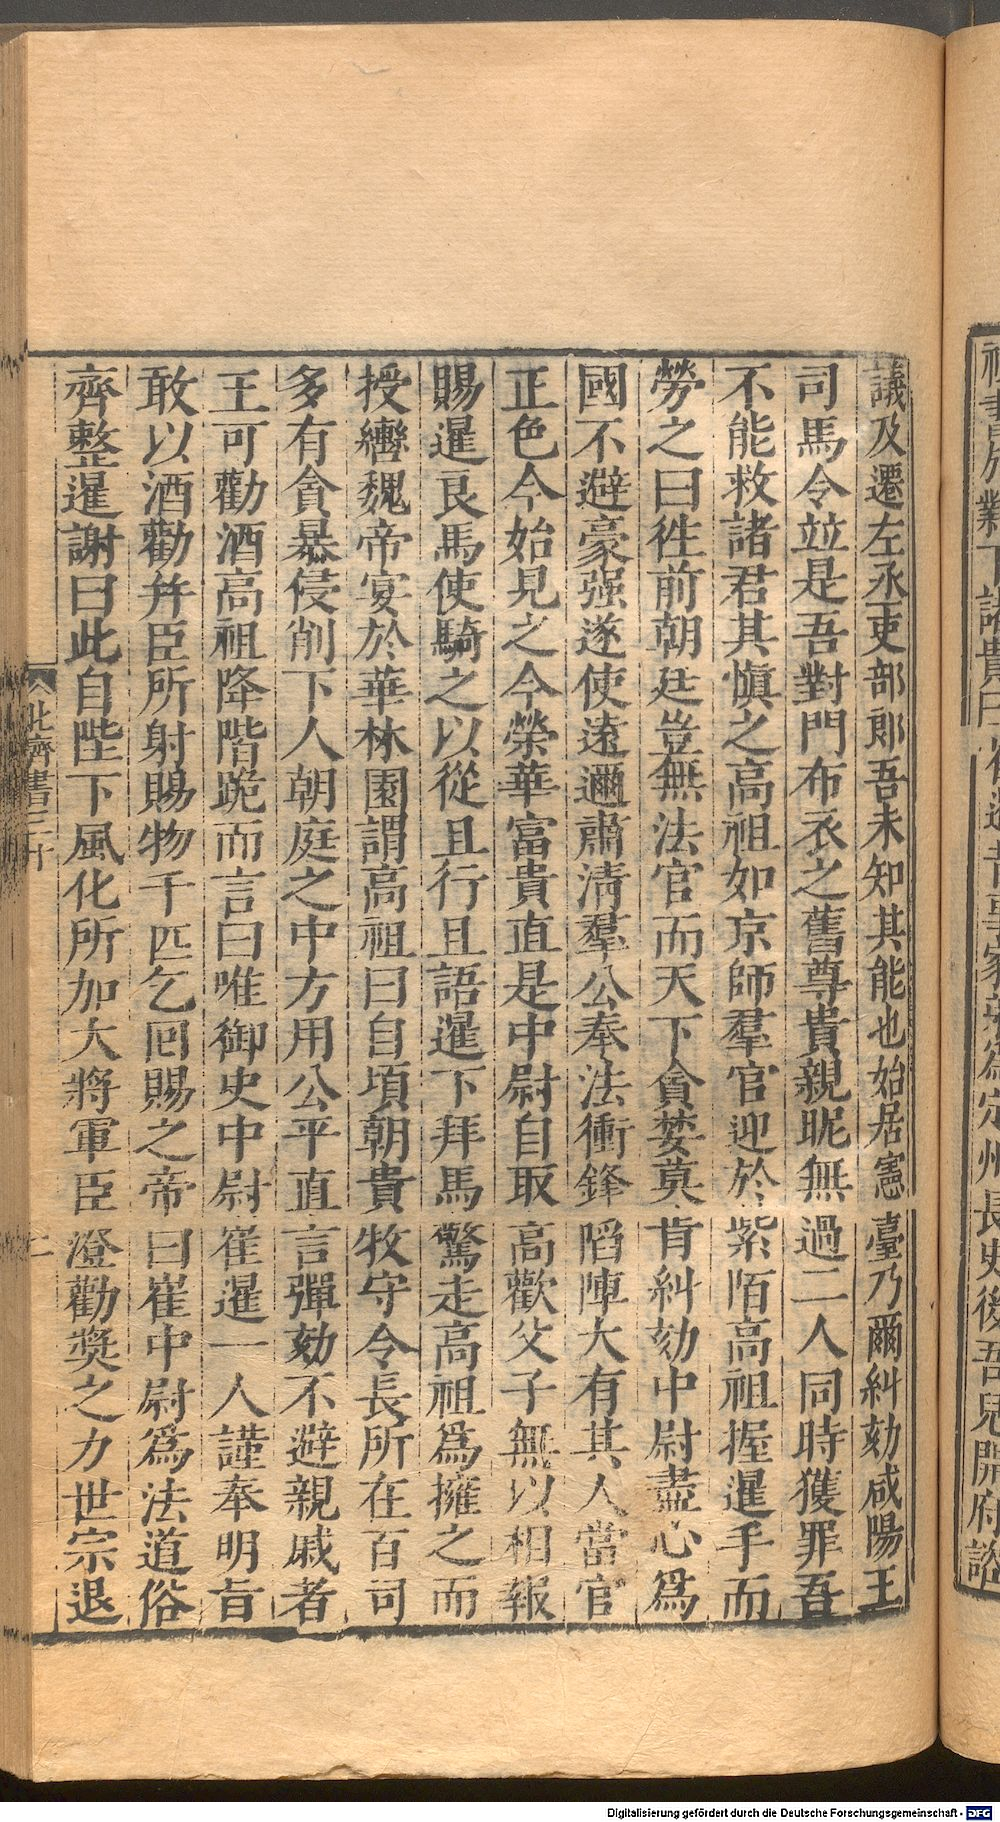 議及遷左丞吏部郎吾未知其能也始居憲臺乃爾糾劾咸陽王
司馬令竝是吾對門布衣之舊尊貴親昵無過二人同時獲罪吾
不能救諸君其慎之高祖如京師羣官迎於紫陌高祖握暹手而
勞之曰徃前朝廷豈無法官而天下貪婪莫肯糾劾中尉盡心爲
國不避豪强遂使遠邇肅清羣公奉法衝鋒䧟陣大有其人當官
正色今始見之今榮華富貴直是中尉自取高歡父子無以相報
賜暹良馬使騎之以從且行且語暹下拜馬驚走高祖爲擁之而
授轡魏帝宴於華林園謂高祖曰自頃朝貴牧守令長所在百司
多有貪暴侵削下人朝庭之中方用公平直言彈劾不避親戚者
王可勸酒高祖降階跪而言曰唯御史中尉崔暹一人謹奉明旨
敢以酒勸并臣所射賜物千匹乞囘賜之帝曰崔中尉爲法道俗
齊整暹謝曰此自陛下風化所加大將軍臣澄勸奬之力世宗退
北齊書三十
二
Digitalisierung gefördert durch die Deutsche Forschungsgemeinschaft - DFG